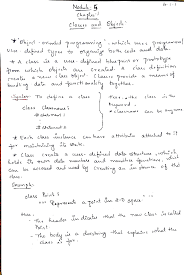 Module 5
Chapter 1
Classes and Objects
* Object-oriented programming, which uses programmer
defined types to organize both code and data.
* A class is a user defined blueprint or prototype
from which objects are created. A class definition
create a new class object. Classes provide a means of
building data and functionality together.
Syntax: To define a class
class classname:
# statement 1
# statement 2
* Each class instance can have attributes attached to it
for maintaining its state.
* Class create a user-defined data structure, which
holds its own data members and member functions, which
can be accessed and used by creating an instance of the
class.
Example:
class Point:
""" Represents a point in 2-D space """
- The header indicates that the new class is called
Point.
- The body is a docstring that explains what the
class is for.